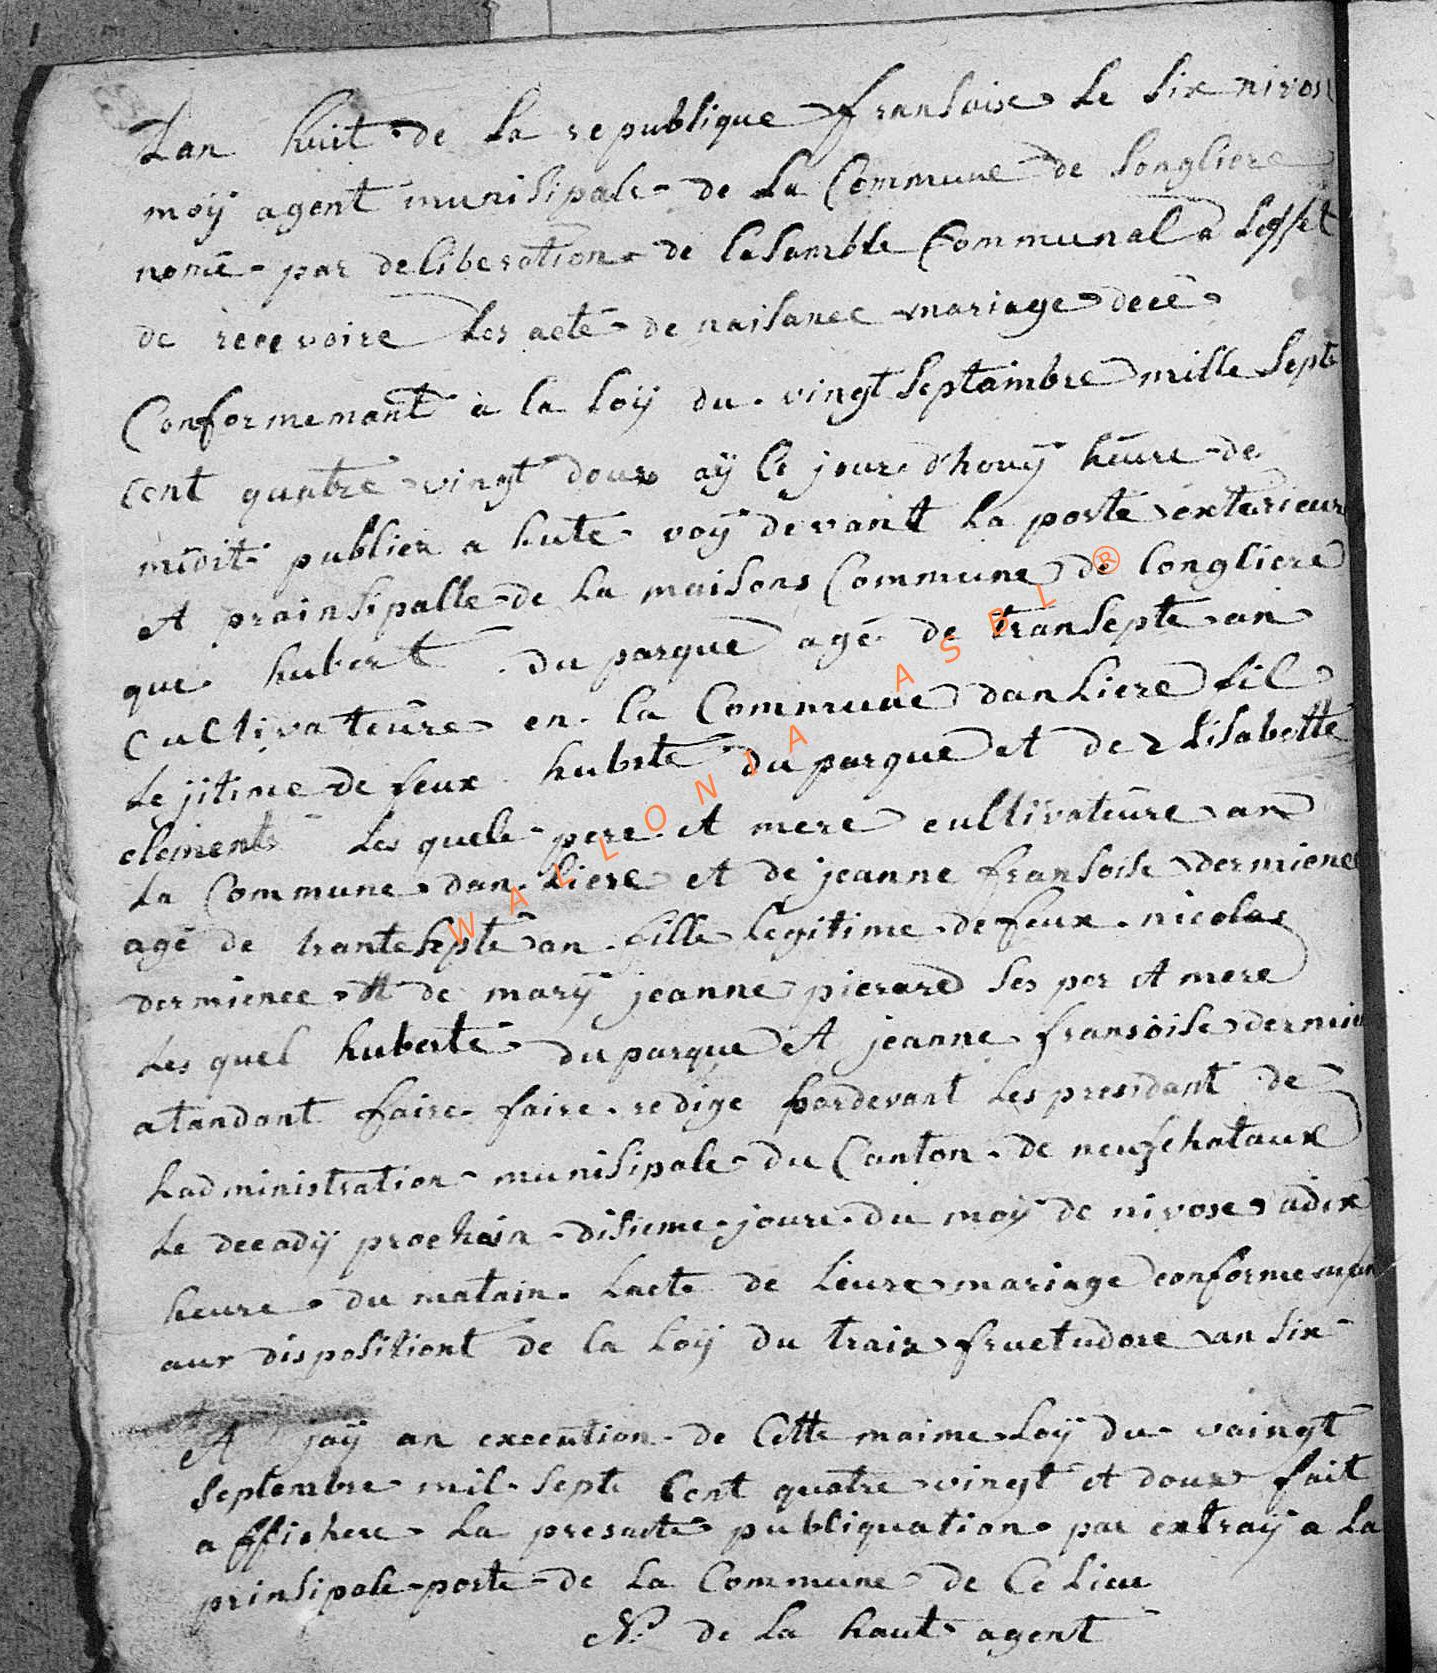 Lan huit de La republique fransoise Le six nivos
moÿ agent munisipale de La Commune de Longliere
nomé par deliberation de lasamble Communal a Leffet
de recevoire Les acte de naisance mariage decé
Conformemant a la Loÿ du vingt Septaimbre mille Sept
Cent quatre vingt douz aÿ Ce jour dhouÿ heure de
midit publier a hute voÿ devant La porte exterieur
et prainsipalle de La maisons Commune de Longliere
que hubert du parque agé de transepte an
Cultivateure en la Commune danliere fil
Lejitime de feux huberte du parque et de Elisabette
clement Les quele pere et mere cultivateure an
La Commune dan Liere et de jeanne fransoise dermience
agé de trantesepte an fille Legitime de feux nicolas
dermience et de marÿ jeanne pierard Ses per et mere
Les quel huberte du parque et jeanne fransoise dermie
atandant faire faire redige pardevant Les presidant de
Ladministration munisipale du Canton de neufchataux
Le decadÿ prochain disieme joure du moÿ de nivose a dix
heure du matain Lacte de Leure mariage conformeman
aux disposisiont de la Loÿ du traiz fructudore an six
et jaÿ an execution de Cette maime Loÿ du vaingt
Septembre mil Sept Cent quatre vingt et douz fait
affichere La presante publiquation par extraÿ a La
prinsipale porte de La Commune de Ce Lieu
N. de La haut agent
WALLONIA ASBL ®